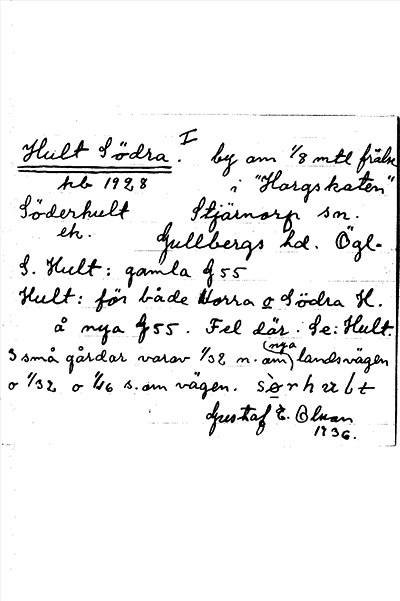 Hult Södra. I by om 1/8 mtl frälse
hb 1928 i "Hargskaten"
Söderhult Stjärnorp sn.
ek. Gullbergs hd. Ögl.
S. Hult: gamla G55
Hult: för både Norra o Södra H.
å nya G55. Fel där. Se: Hult.
3 små gårdar varav 1/32 n. om (nya) landsvägen
o 1/32 o 1/16 s. om vägen.
Gustaf E. Olsson
1936.